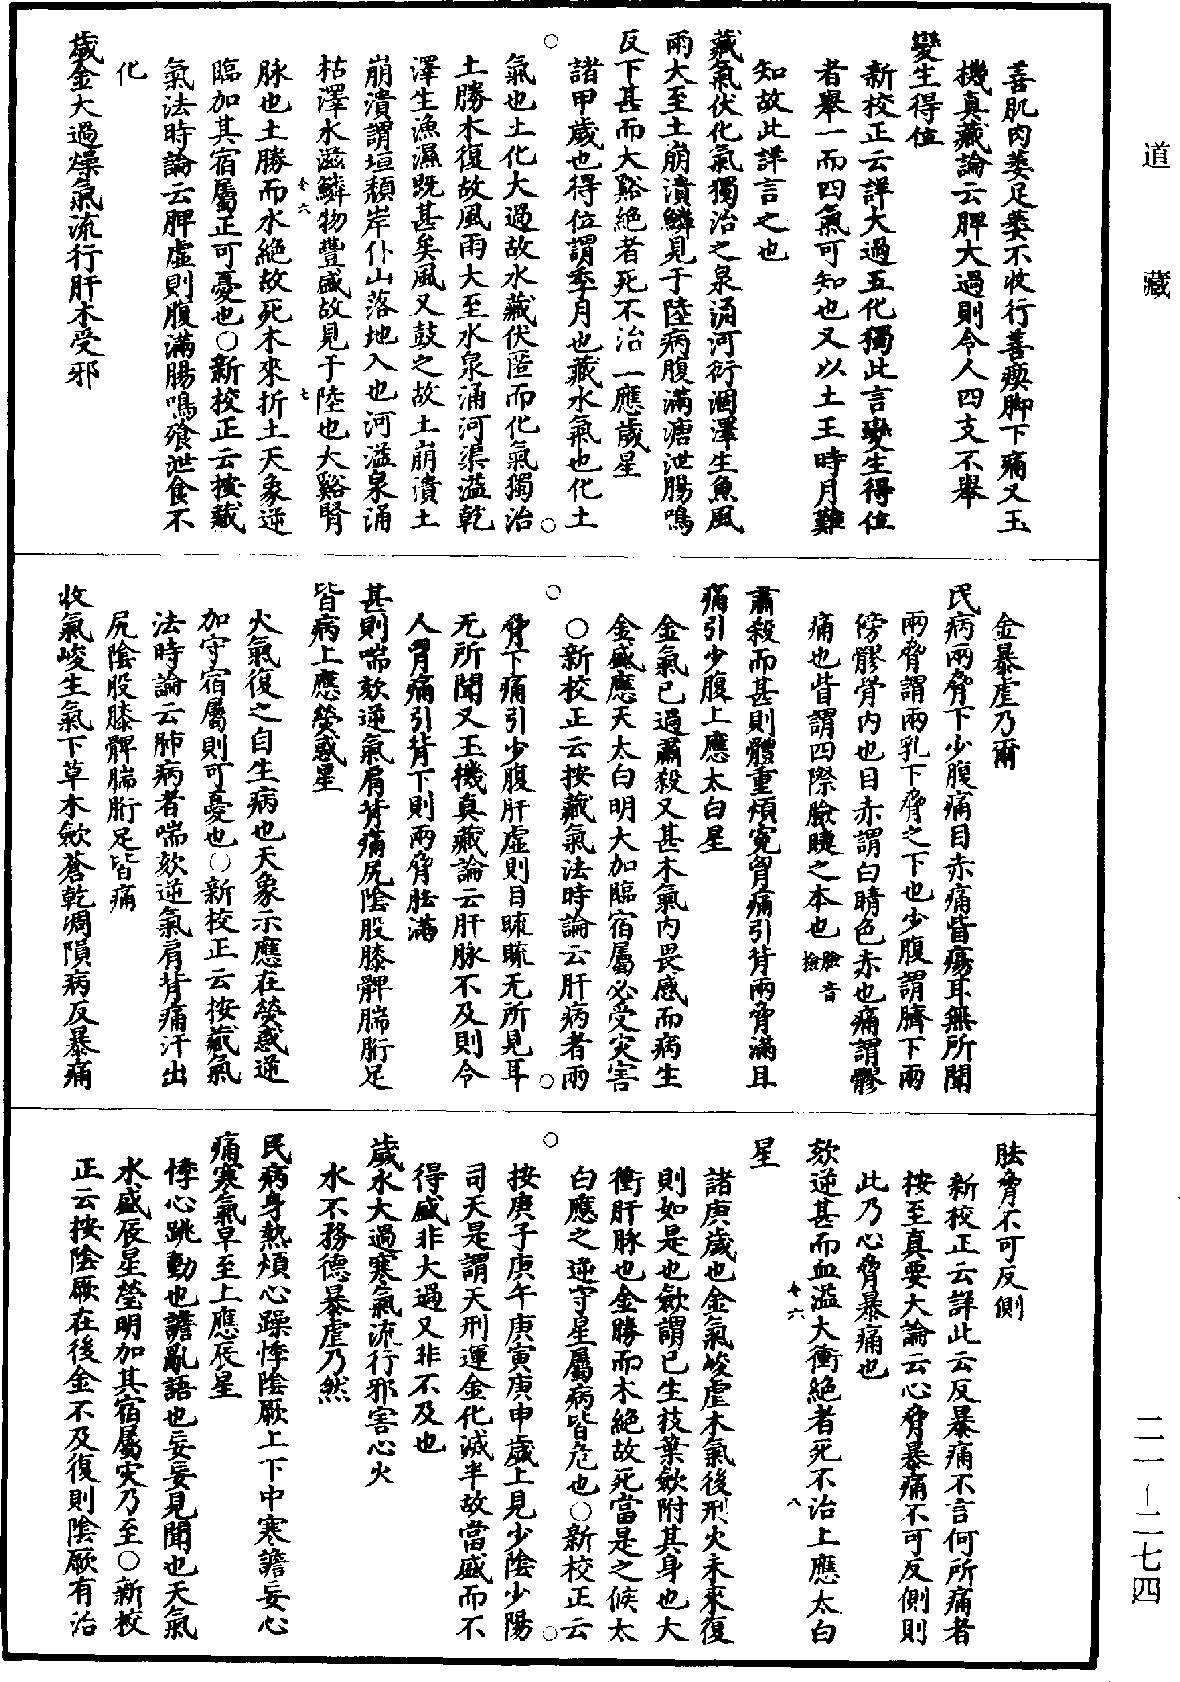 道藏
善肌肉萎足萎不收行善瘈脚下痛又玉
機真藏論云脾大過則令人四支不舉
變生得位
新校正云詳大過五化獨此言變生得位
者舉一而四氣可知也又以土王時月難
知故此詳言之也
藏氣伏化氣獨治之泉涌河衍涸澤生魚風
雨大至土崩潰鱗見于陸病腹滿溏泄腸鳴
反下甚而大谿絕者死不治一應歲星
諸甲歲也得位謂季月也藏水氣也化土
氣也土化大過故水藏伏匿而化氣獨治
土勝木復故風雨大至水泉涌河渠溢乾
澤生漁濕既甚矣風又鼓之故土崩潰土
崩潰謂垣頹岸仆山落地入也河溢泉涌
枯澤水滋鱗物豐盛故見于陸也大谿腎
脉也土勝而水絕故死木來折土天象逆
臨加其宿屬正可憂也○新校正云按藏
氣法時論云脾虛則腹滿腸鳴飱泄食不
化
歲金大過燥氣流行肝木受邪
金暴虐乃爾
民病兩脅下少腹痛目赤痛眥瘍耳無所聞
兩脅謂兩乳下脅之下也少腹謂臍下兩
傍髎骨內也目赤謂白睛色赤也痛謂髎
痛也眥謂四際瞼睫之本也瞼音撿
肅殺而甚則體重煩寃胷痛引背兩脅滿且
痛引少腹上應太白星
金氣已過肅殺又甚木氣內畏感而病生
金盛應天太白明大加臨宿屬必受災害
○新校正云按藏氣法時論云肝病者兩
脅下痛引少腹肝虛則目䀮䀮无所見耳
无所聞又玉機真藏論云肝脉不及則令
人胷痛引背下則兩脅胠滿
甚則喘欬逆氣肩背痛尻陰股膝髀腨胻足
皆病上應熒惑星
火氣復之自生病也天象示應在熒惑逆
加守宿屬則可憂也○新校正云按藏氣
法時論云肺病者喘欬逆氣肩背痛汗出
尻陰股膝髀腨胻足皆痛
收氣峻生氣下草木歛蒼乾凋隕病反暴痛
胠脅不可反側
新校正云詳此云反暴痛不言何所痛者
按至真要大論云心脅暴痛不可反側則
此乃心脅暴痛也
欬逆甚而血溢大衝絕者死不治上應太白
星
諸庚歲也金氣峻虐木氣後刑火未來復
則如是也歛謂已生枝葉歛附其身也大
衝肝脉也金勝而木絕故死當是之候太
白應之逆守星屬病皆危也○新校正云
按庚子庚午庚寅庚申歲上見少陰少陽
司天是謂天刑運金化減半故當盛而不
得盛非大過又非不及也
歲水大過寒氣流行邪害心火
水不務德暴虐乃然
民病身熱煩心躁悸陰厥上下中寒譫妄心
痛寒氣早至上應辰星
悸心跳動也譫亂語也妄妄見聞也天氣
水盛辰星瑩明加其宿屬災乃至○新校
正云按陰厥在後金不及復則陰厥有治
二一—二七四